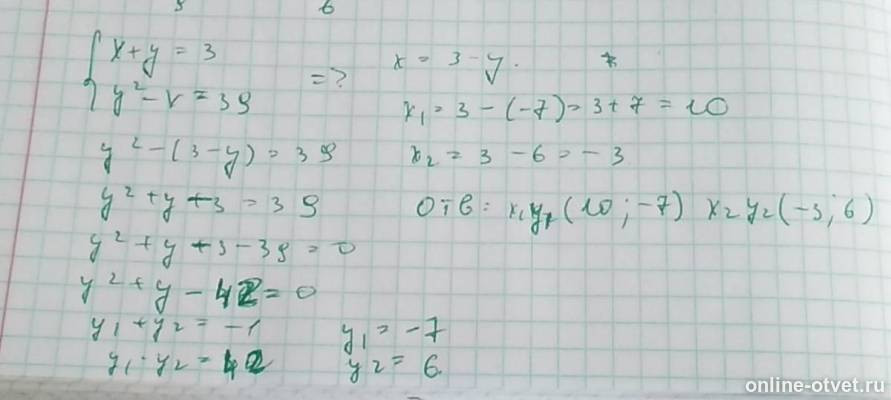 5 6
x + y = 3
y² - x = 39
=?
y² - (3 - y) = 39
y² + y - 3 = 39
y² + y - 3 - 39 = 0
y² + y - 42 = 0
y₁ + y₂ = -1
y₁ · y₂ = 42
y₁ = -7
y₂ = 6
x = 3 - y.
x₁ = 3 - (-7) = 3 + 7 = 10
x₂ = 3 - 6 = -3
Отв: x₁y₁ (10; -7) x₂y₂ (-3; 6)
online-otvet.ru